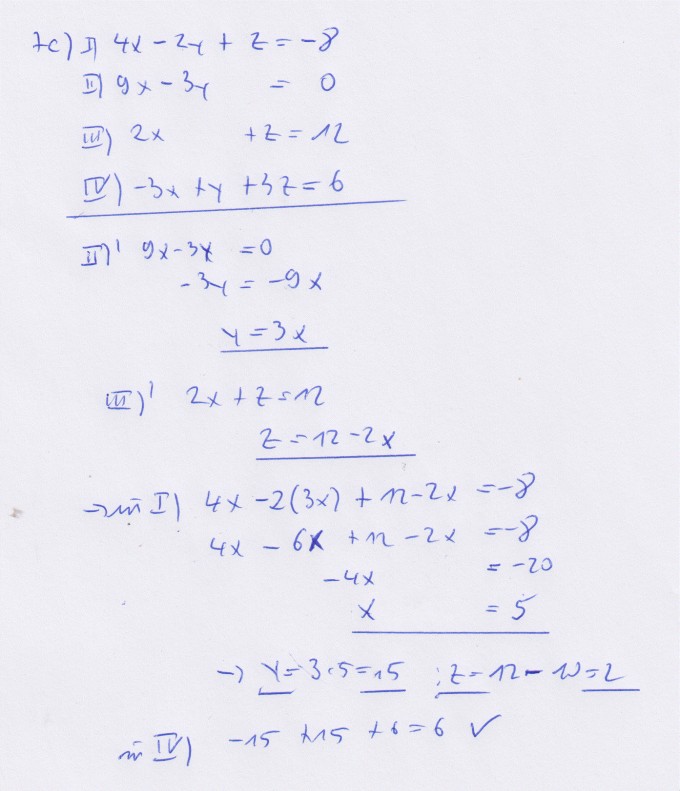 7c) I) 4x - 2y + z = -8
II) 9x - 3y = 0
III) 2x + z = 12
IV) -3x + y + 3z = 6
II)' 9x - 3y = 0
-3y = -9x
y = 3x
III)' 2x + z = 12
z = 12 - 2x
-> in I) 4x - 2(3x) + 12 - 2x = -8
4x - 6x + 12 - 2x = -8
-4x = -20
x = 5
-> y = 3·5 = 15 ; z = 12 - 10 = 2
in IV) -15 + 15 + 6 = 6 ✓